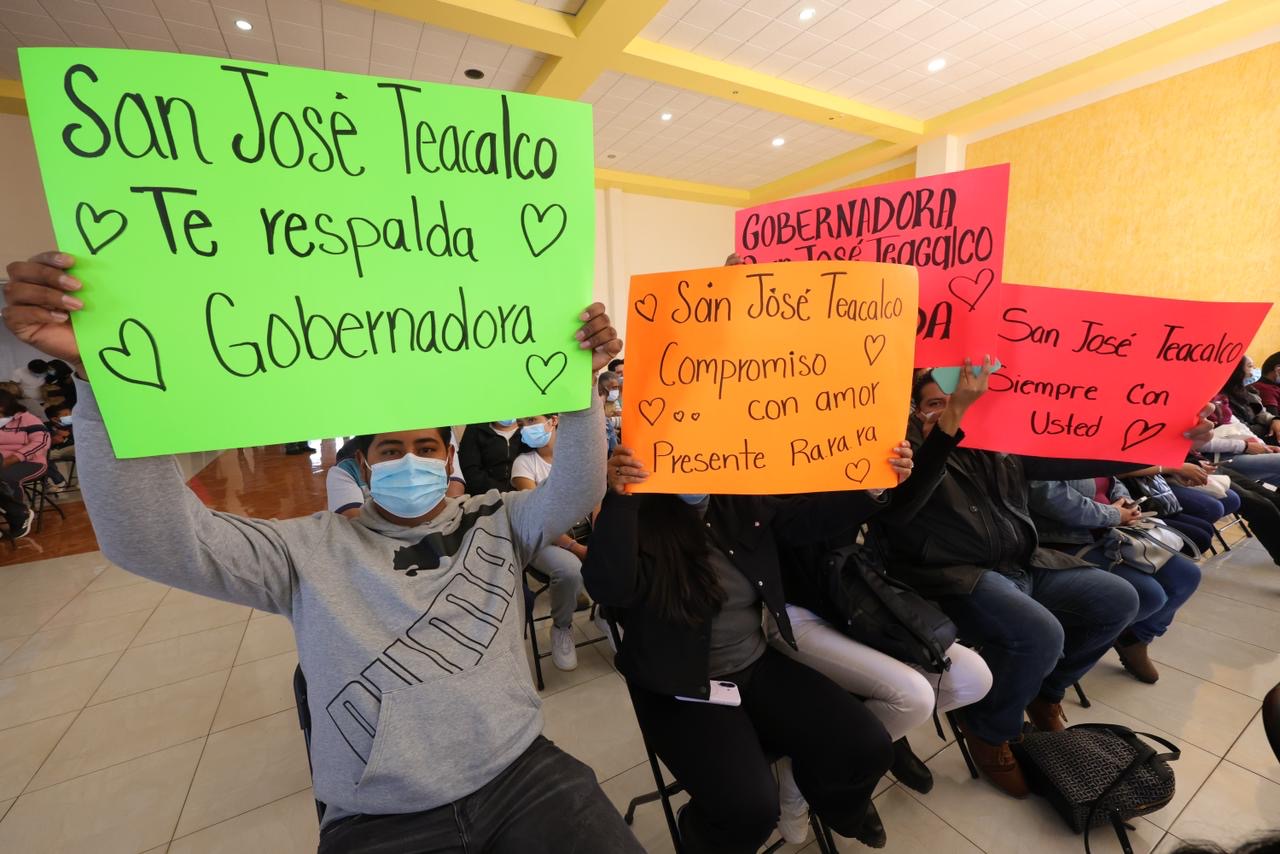 San José Teacalco
Te respalda
Gobernadora
San José Teacalco
Compromiso
con amor
Presente Rara ra
GOBERNADORA
San José Teacalco
San José Teacalco
Siempre con
Usted
PUMA